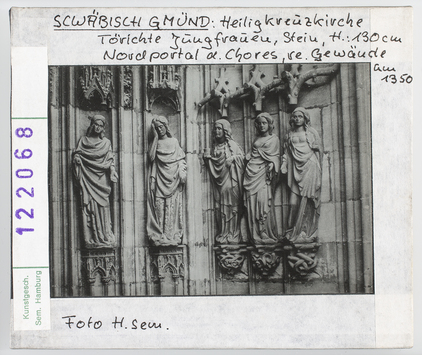 SCHWÄBISCH GMÜND: Heiligkreuzkirche
Törichte Jungfrauen, Stein, H.: 130 cm
Nordportal d. Chores, re. Gewände
um
1350
122068
Kunstgesch.
Sem. Hamburg
Foto H. Sem.